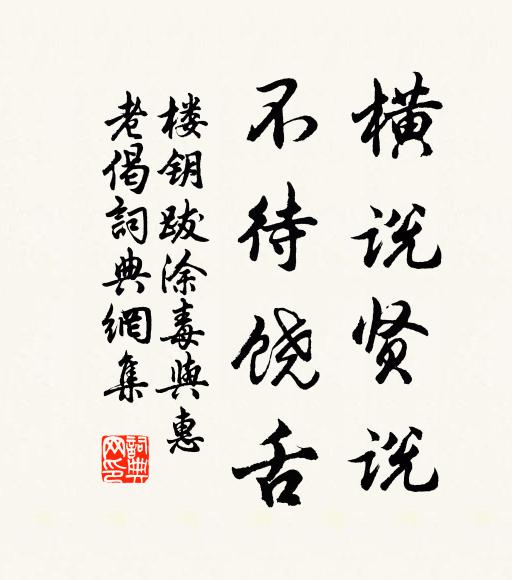 横说贤说
不待饶舌
楼钥跋涂毒与惠
老偈詞典網集
詞典网印